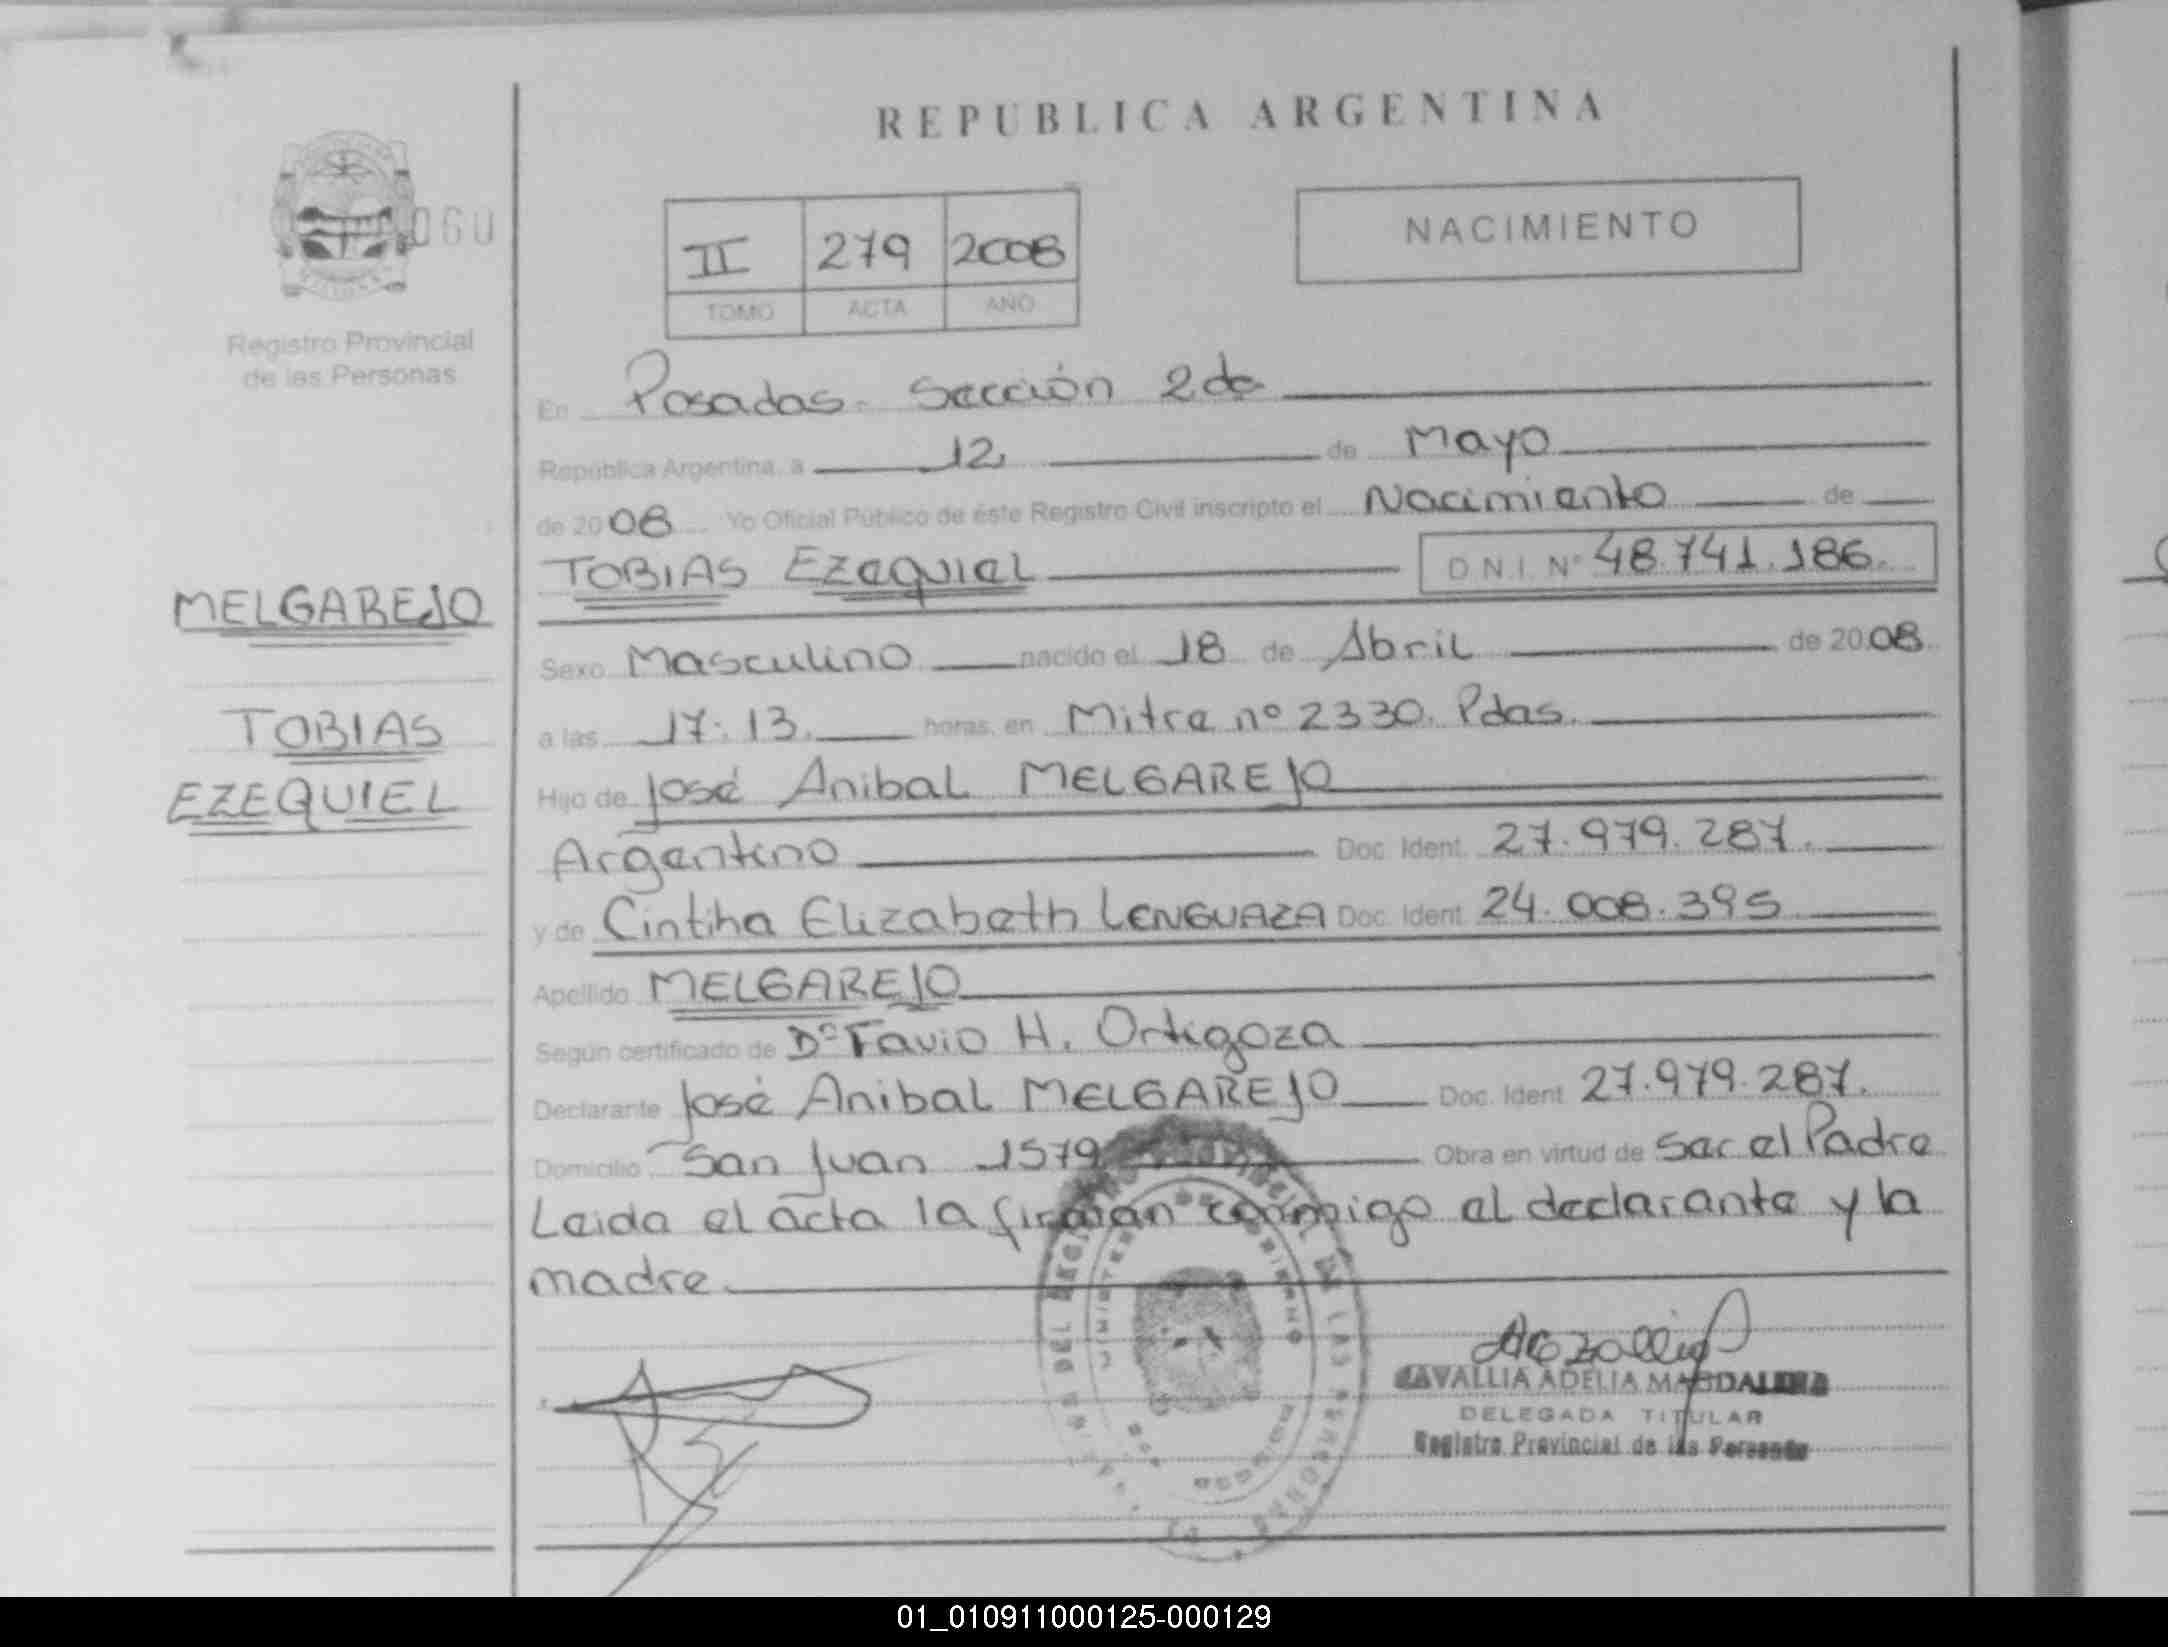 REPUBLICA ARGENTINA
060
Registro Provincial
de las Personas
II 279 2008
TOMO ACTA AÑO
NACIMIENTO
En Posadas. Sección 2da
República Argentina, a 12 de Mayo
de 2008 Yo Oficial Público de éste Registro Civil inscripto el Nacimiento de
TOBIAS EZEQUIEL D.N.I. Nº 48.741.186.
MELGAREJO
TOBIAS
EZEQUIEL
Sexo Masculino nacido el 18 de Abril de 2008
a las 17:13. horas, en Mitre nº 2330. Pdas.
Hijo de José Anibal MELGAREJO
Argentino Doc. Ident. 27.979.287.
y de Cintiha Elizabeth LENGUAZA Doc. Ident. 24.008.395
Apellido MELGAREJO
Según certificado de Dº Favio H. Ortigoza
Declarante José Anibal MELGAREJO Doc. Ident 27.979.287.
Domicilio San Juan 1579 Obra en virtud de Ser el Padre
Leida el acta la firman conmigo el declarante y la
madre.
CAVALLIA ADELIA MAGDALENA
DELEGADA TITULAR
Registro Provincial de las Personas
DEL REGISTRO PROVINCIAL DE LAS PERSONAS
MINISTERIO DE GOBIERNO
POSADAS
01_010911000125-000129